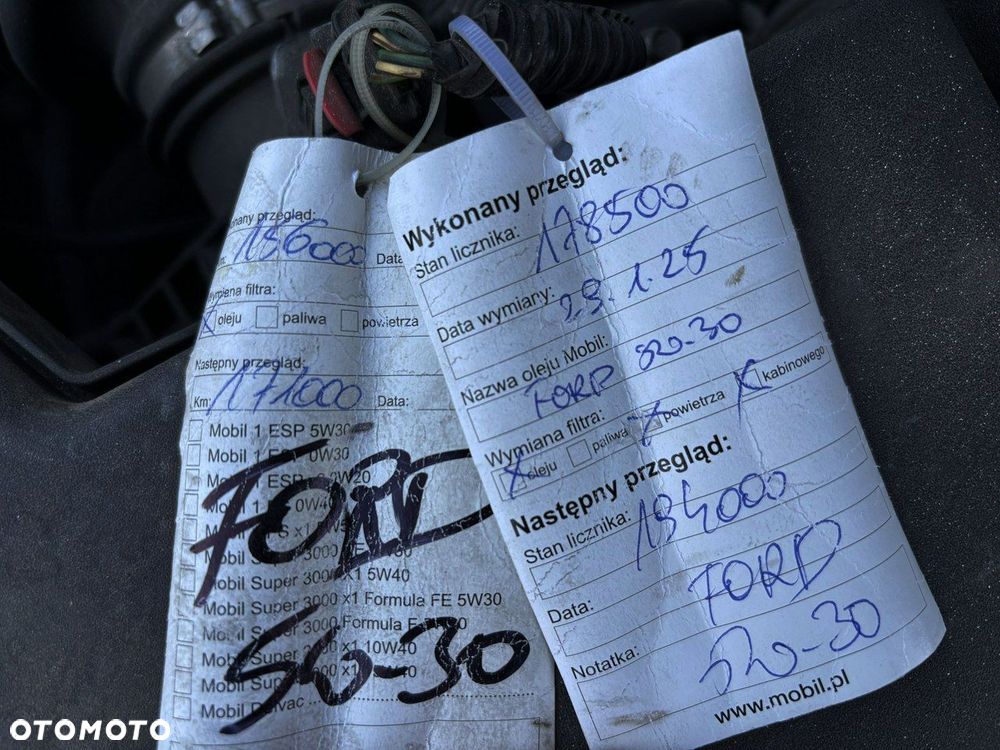 nany przegląd:
156000 Data
Wymiana filtra:
X oleju paliwa powietrza
Następny przegląd:
Km: 171000 Data:
Mobil 1 ESP 5W30
Mobil 1 ESP 0W30
Mobil 1 ESP 0W20
Mobil 1 0W40
Mobil Super 3000 x1 5W40
Mobil Super 3000 x1 Formula FE 5W30
Mobil Super 3000 Formula
Mobil Super x1 10W40
Mobil Super
Mobil Delvac
FORD
5W-30
Wykonany przegląd:
Stan licznika: 178500
Data wymiany: 29.1.25
Nazwa oleju Mobil:
FORD 5W-30
Wymiana filtra:
X oleju paliwa X powietrza X kabinowego
Następny przegląd:
Stan licznika: 194000
Data: FORD
Notatka: 5W-30
www.mobil.pl
OTOMOTO